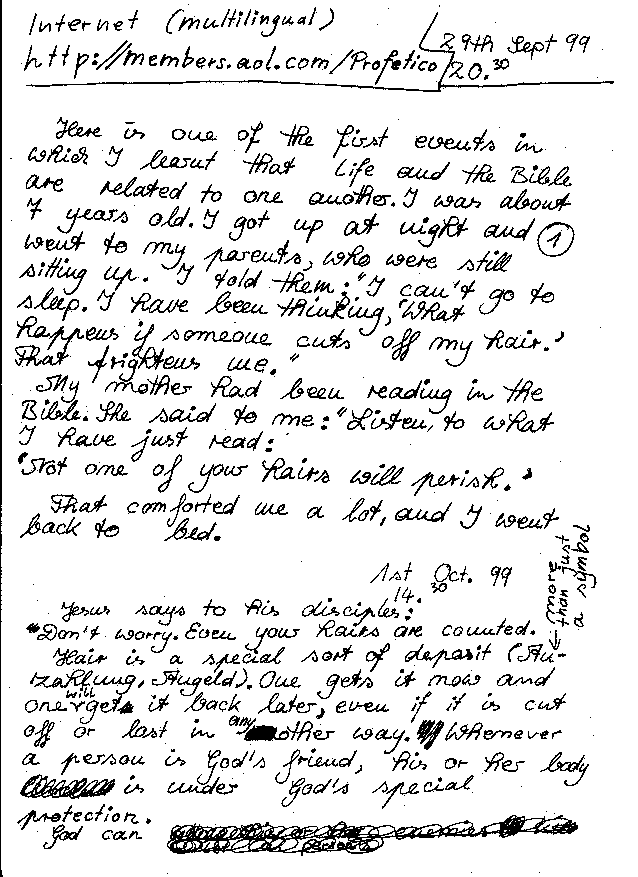 Internet (multilingual)
29th Sept 99
http://members.aol.com/Profetico
20.30
Here is one of the first events in
which I learnt that Life and the Bible
are related to one another. I was about
7 years old. I got up at night and
1
went to my parents, who were still
sitting up. I told them: "I can't go to
sleep. I have been thinking, 'What
happens if someone cuts off my hair.'
That frightens me."
My mother had been reading in the
Bible. She said to me: "Listen, to what
I have just read:
'Not one of your hairs will perish.'
That comforted me a lot, and I went
back to bed.
1st Oct. 99
14.30
Jesus says to his disciples:
"Don't worry. Even your hairs are counted.
Hair is a special sort of deposit (An-
← (more
than just
a symbol
zahlung, Angeld). One gets it now and
one will get it back later, even if it is cut
off or last in any other way. Whenever
a person is God's friend, his or her body
is under God's special
protection.
God can